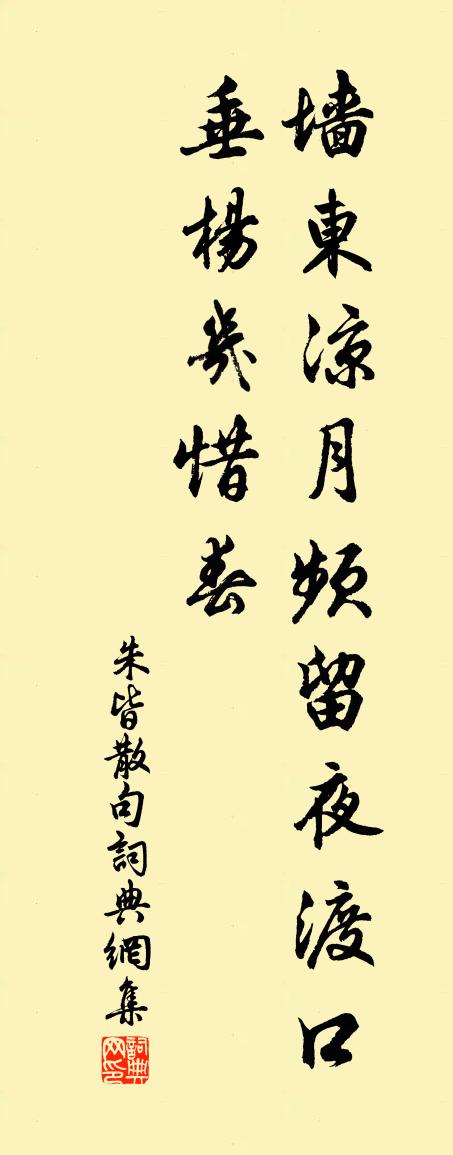 墙東涼月頻留夜渡口
垂楊幾惜春
朱皆散句詞典網集
詞典网印